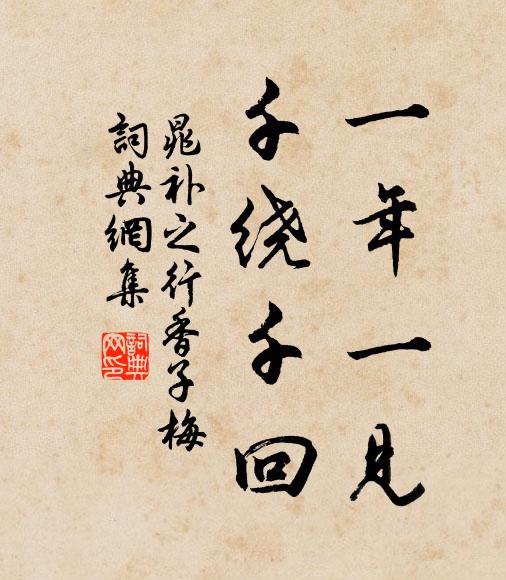 一年一见
千绕千回
晁补之行香子梅
詞典網集
詞典
网印